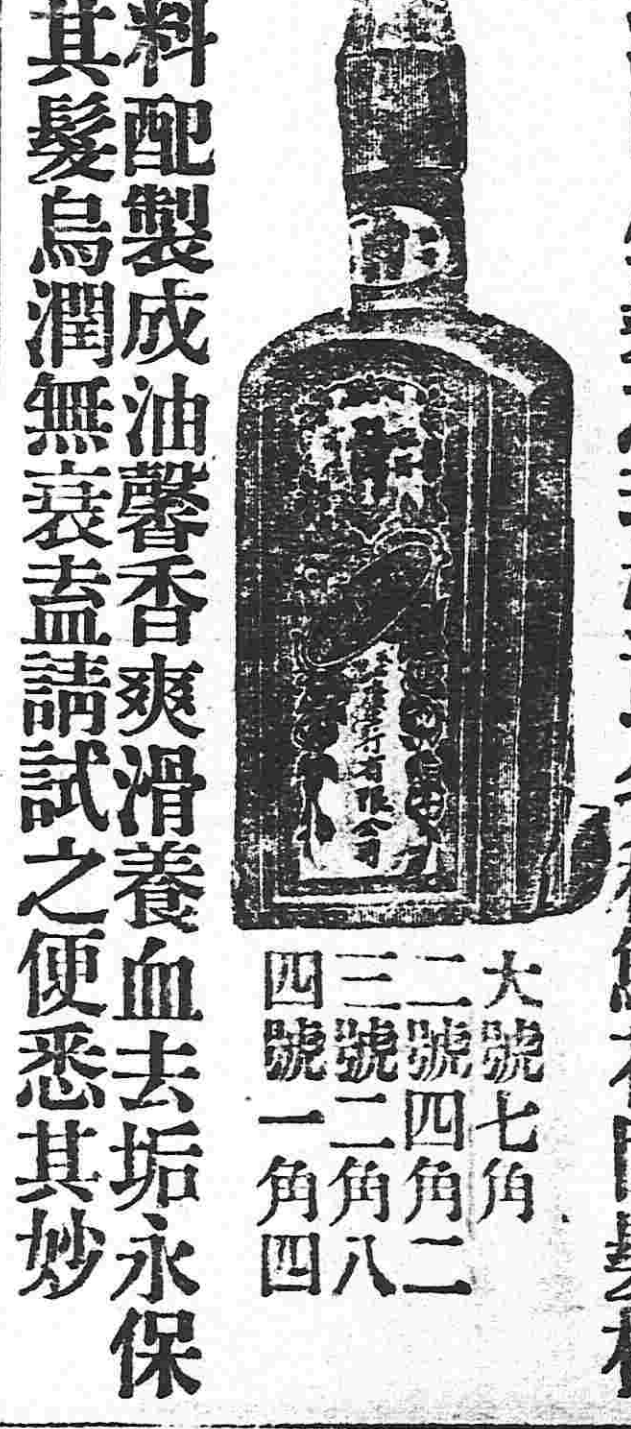 大號七角
二號四角二
三號二角八
四號一角四
行有限公司
料配製成油馨香爽滑養血去垢永保
其髮烏潤無衰盍請試之便悉其妙